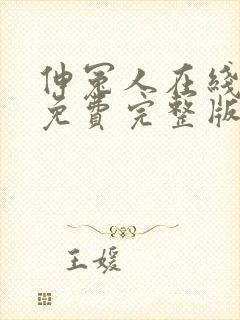 伸冤人在线
免费完整版
王媛